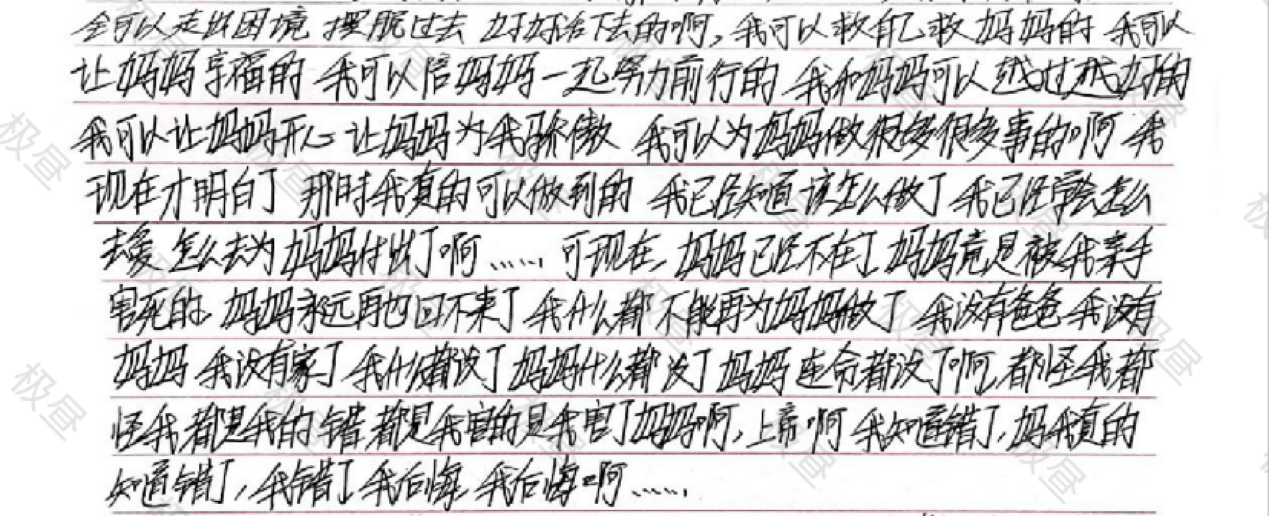 全可以走出困境 摆脱过去 好好活下去的啊，我可以救自己救妈妈的 我可以
让妈妈享福的 我可以陪妈妈一起努力前行的 我和妈妈可以越过越好的
我可以让妈妈开心 让妈妈为我骄傲 我可以为妈妈做很多很多事的啊 我
现在才明白了 那时我真的可以做到的 我已经知道该怎么做了 我已经学会怎么
去爱 怎么去为妈妈付出了啊……可现在，妈妈已经不在了 妈妈竟是被我亲手
害死的 妈妈永远再也回不来了 我什么都不能再为妈妈做了 我没有爸爸 我没有
妈妈 我没有家了 我什么都没了 妈妈什么都没了 妈妈连命都没了啊，都怪我都
怪我 都是我的错 都是我害的是我害了妈妈啊，上帝啊 我知道错了，妈我真的
知道错了，我错了 我后悔 我后悔啊……
极昼
极昼
极昼
极昼
极昼
极昼